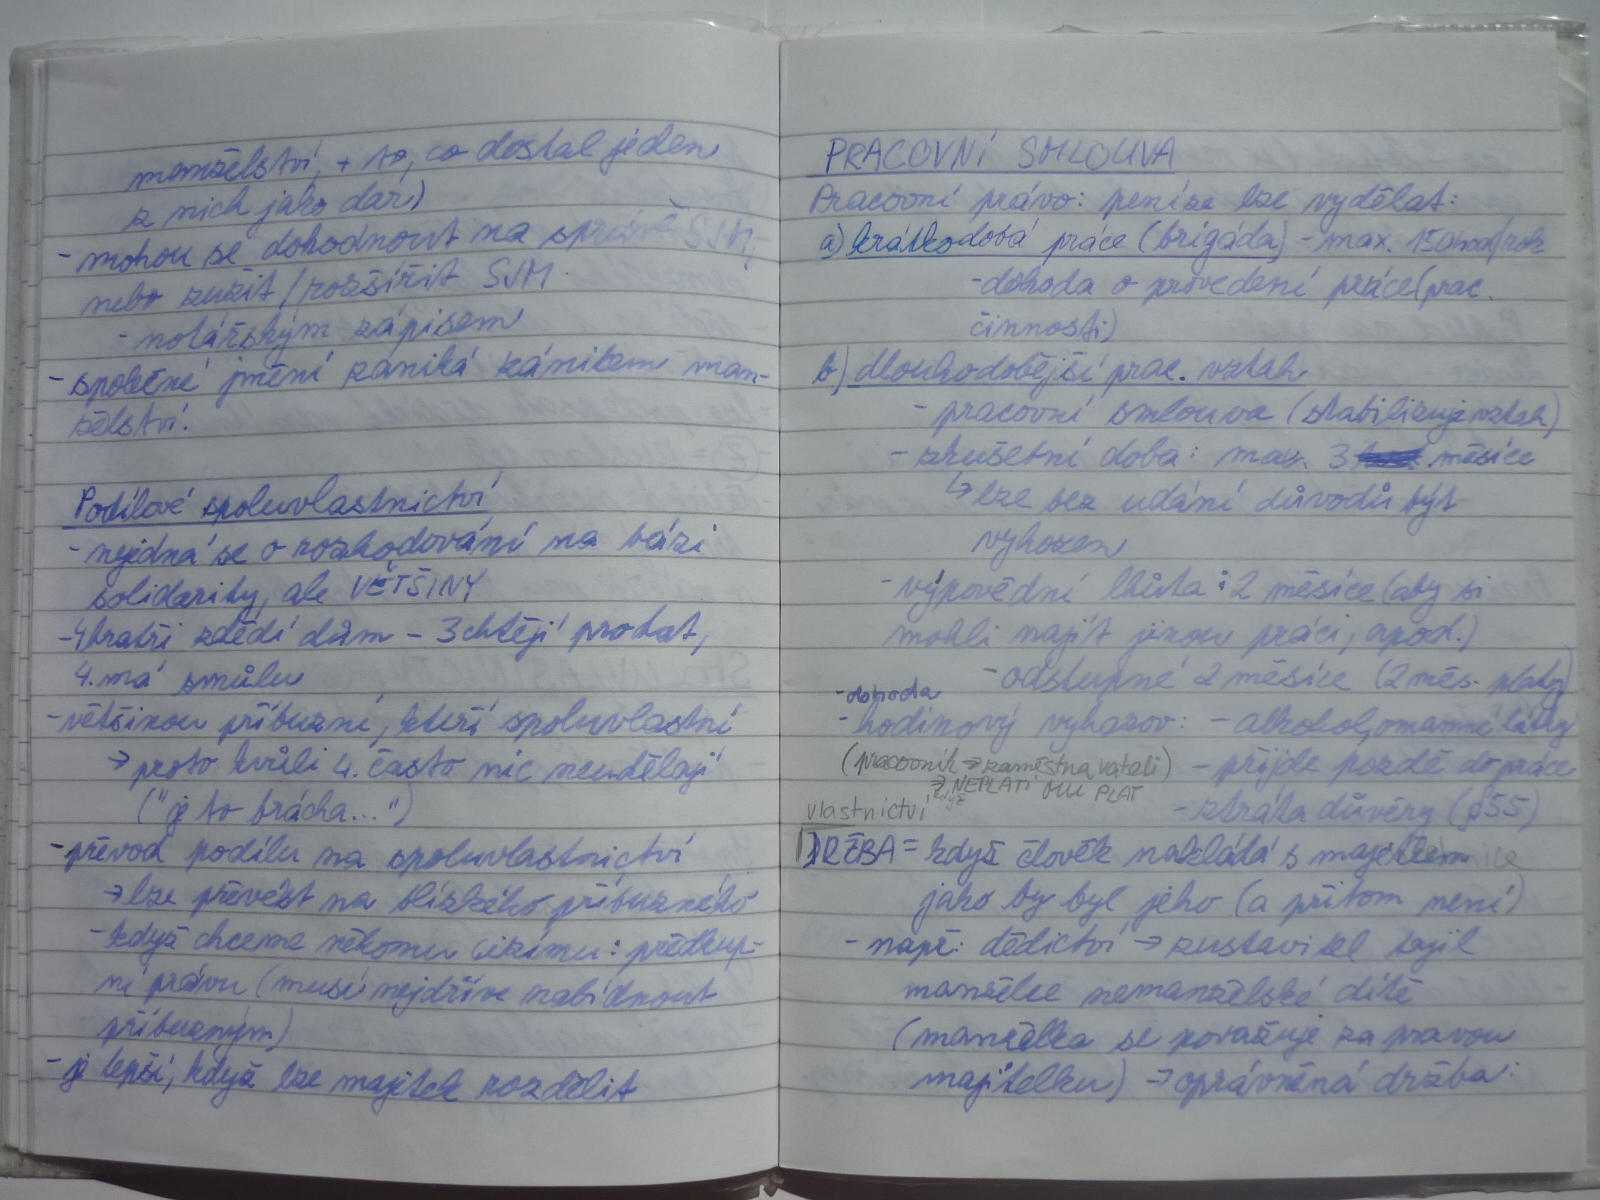 manželství, + to, co dostal jeden
z nich jako dar)
- mohou se dohodnout na správě SJM,
nebo zúžit/rozšířit SJM
- notářským zápisem
- společné jmění zaniká zánikem man-
želství.
Podílové spoluvlastnictví
- nejedná se o rozhodování na bázi
solidarity, ale VĚTŠINY
- 4 bratři zdědí dům - 3 chtějí prodat,
4. má smůlu
- většinou příbuzní, kteří spoluvlastní
→ proto kvůli 4. často nic neudělají
("je to brácha...")
- převod podílu na spoluvlastnictví
→ lze převést na blízkého příbuzného
- když chceme někomu cizímu: předkup-
ní právu (musí nejdříve nabídnout
příbuzným)
- je lepší, když lze majetek rozdělit
PRACOVNÍ SMLOUVA
Pracovní právo: peníze lze vydělat:
a) krátkodobá práce (brigáda) - max. 150hod/rok
- dohoda o provedení práce (prac.
činnosti)
b) dlouhodobější prac. vztah
- pracovní smlouva (stabilizuje vztah)
- zkušební doba: max. 3 měsíce
↳ lze bez udání důvodů být
vyhozen
- výpovědní lhůta: 2 měsíce (aby si
mohli najít jinou práci, apod.)
- odstupné 2 měsíce (2 měs. platy)
- dohoda
- hodinový vyhazov: - alkohol, omamné látky
(pracovník → zaměstnavateli) - přijde pozdě do práce
→ když NEPLATÍ MU PLAT
vlastnictví - ztráta důvěry (§55)
DRŽBA = když člověk nakládá s majetkem
jako by byl jeho (a přitom není)
- např: dědictví → zůstavitel tajil
manželce nemanželské dítě
(manželka se považuje za pravou
majitelku) → oprávněná držba: